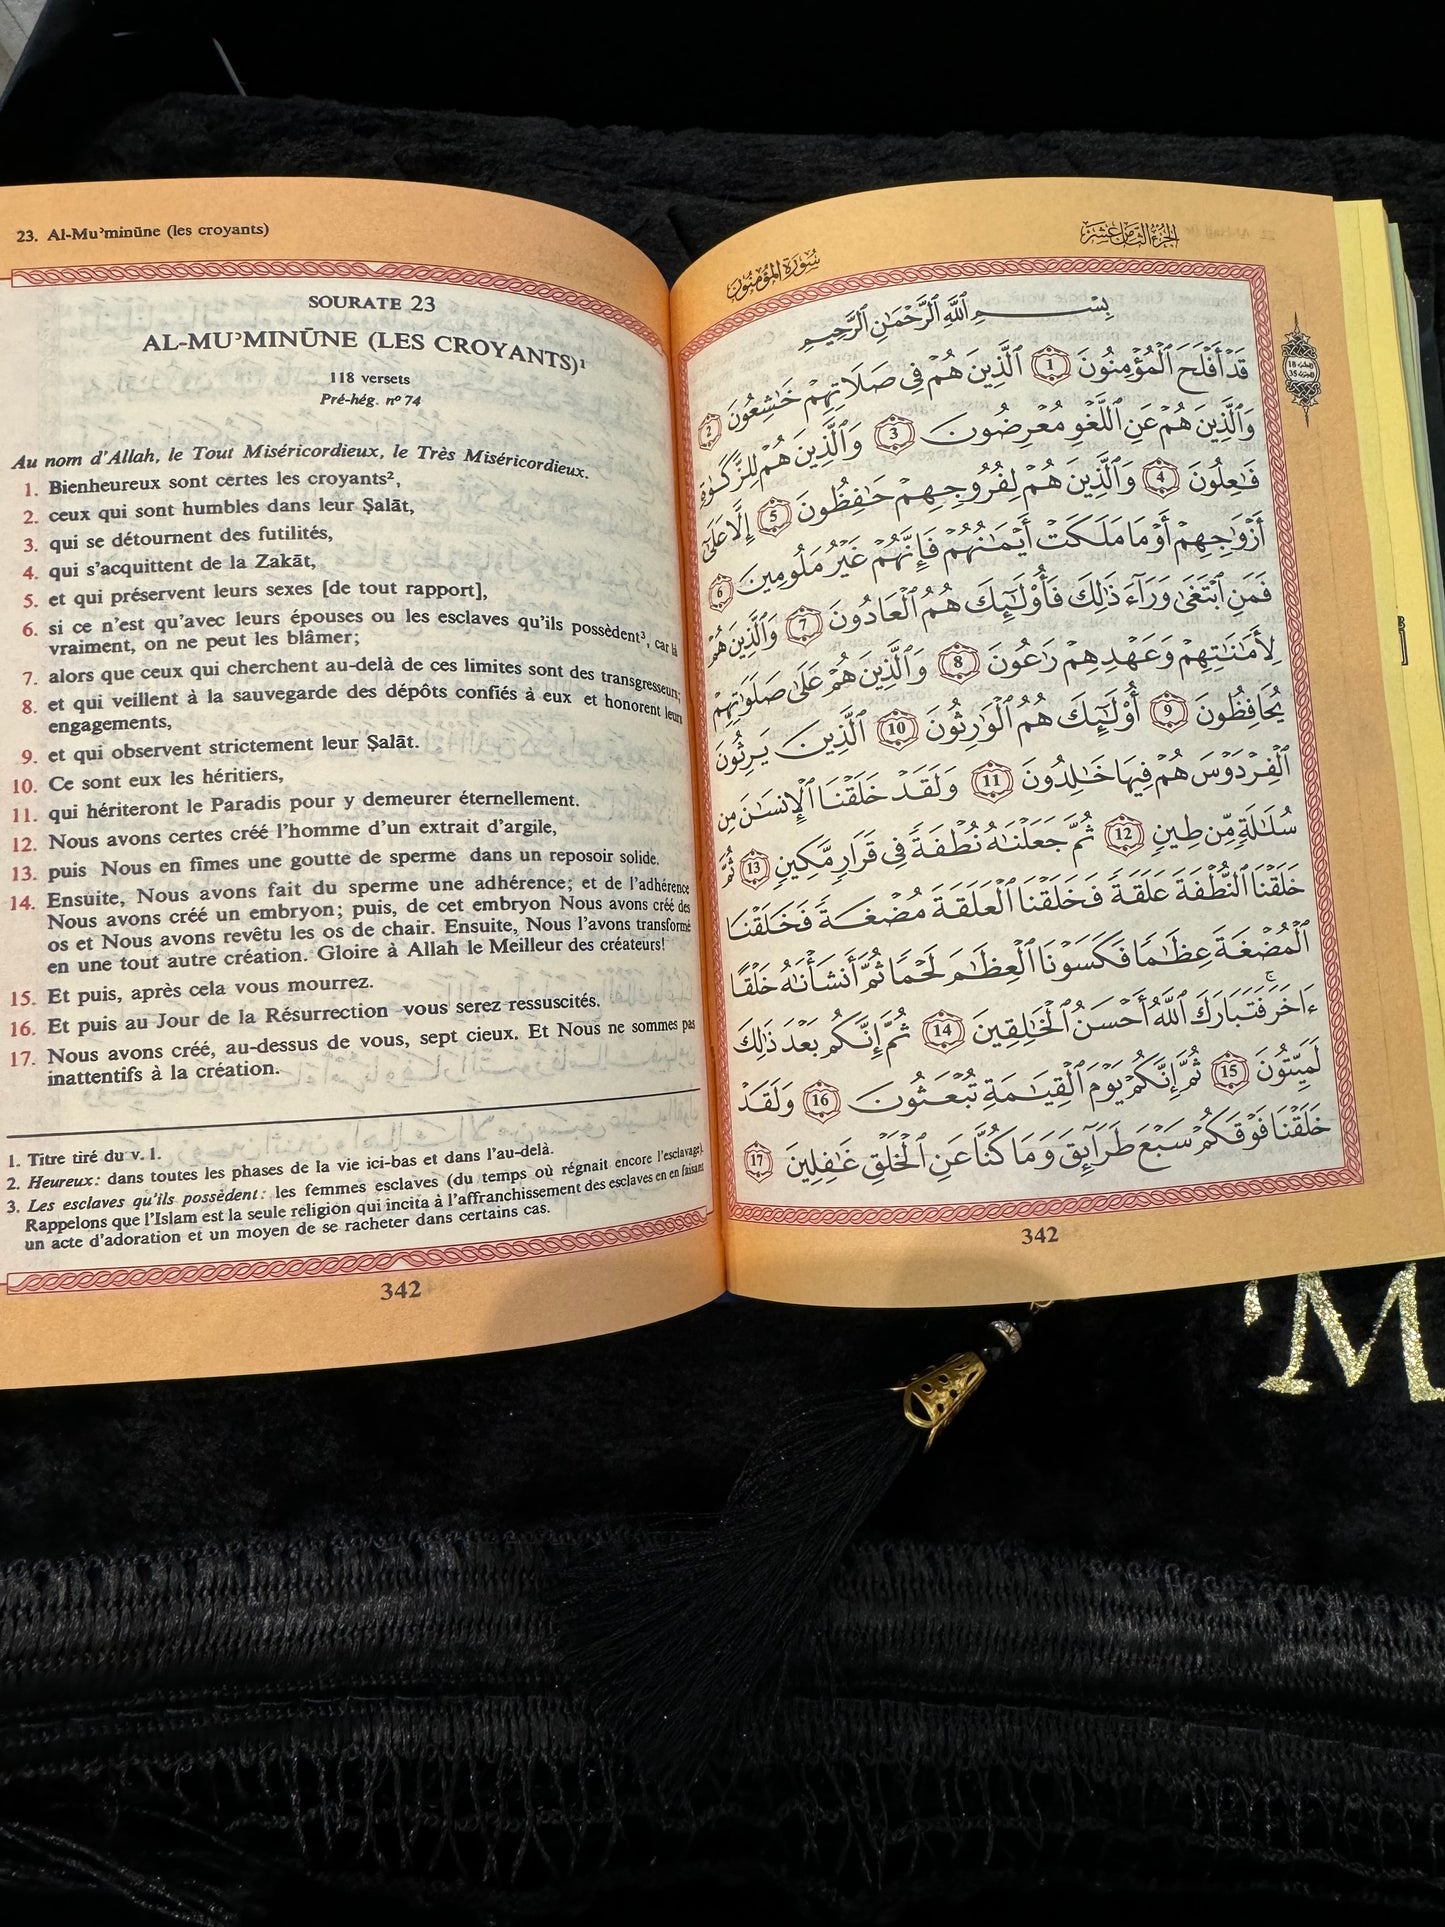 23. Al-Mu’minūne (les croyants)
SOURATE 23
AL-MU’MINŪNE (LES CROYANTS)¹
118 versets
Pré-hég. nº 74
Au nom d’Allah, le Tout Miséricordieux, le Très Miséricordieux.
1. Bienheureux sont certes les croyants²,
2. ceux qui sont humbles dans leur Ṣalāt,
3. qui se détournent des futilités,
4. qui s’acquittent de la Zakāt,
5. et qui préservent leurs sexes [de tout rapport],
6. si ce n’est qu’avec leurs épouses ou les esclaves qu’ils possèdent³, car là
vraiment, on ne peut les blâmer;
7. alors que ceux qui cherchent au-delà de ces limites sont des transgresseurs;
8. et qui veillent à la sauvegarde des dépôts confiés à eux et honorent leurs
engagements,
9. et qui observent strictement leur Ṣalāt.
10. Ce sont eux les héritiers,
11. qui hériteront le Paradis pour y demeurer éternellement.
12. Nous avons certes créé l’homme d’un extrait d’argile,
13. puis Nous en fîmes une goutte de sperme dans un reposoir solide.
14. Ensuite, Nous avons fait du sperme une adhérence; et de l’adhérence
Nous avons créé un embryon; puis, de cet embryon Nous avons créé des
os et Nous avons revêtu les os de chair. Ensuite, Nous l’avons transformé
en une tout autre création. Gloire à Allah le Meilleur des créateurs!
15. Et puis, après cela vous mourrez.
16. Et puis au Jour de la Résurrection vous serez ressuscités.
17. Nous avons créé, au-dessus de vous, sept cieux. Et Nous ne sommes pas
inattentifs à la création.
1. Titre tiré du v. 1.
2. Heureux: dans toutes les phases de la vie ici-bas et dans l’au-delà.
3. Les esclaves qu’ils possèdent: les femmes esclaves (du temps où régnait encore l’esclavage).
Rappelons que l’Islam est la seule religion qui incita à l’affranchissement des esclaves en en faisant
un acte d’adoration et un moyen de se racheter dans certains cas.
342
سُورَةُ المُؤْمِنُونَ
الجُزْءُ الثَّامِنَ عَشَرَ
بِسْمِ ٱللَّهِ ٱلرَّحْمَٰنِ ٱلرَّحِيمِ
قَدْ أَفْلَحَ ٱلْمُؤْمِنُونَ 1 ٱلَّذِينَ هُمْ فِى صَلَاتِهِمْ خَٰشِعُونَ 2
وَٱلَّذِينَ هُمْ عَنِ ٱللَّغْوِ مُعْرِضُونَ 3 وَٱلَّذِينَ هُمْ لِلزَّكَوٰةِ
فَٰعِلُونَ 4 وَٱلَّذِينَ هُمْ لِفُرُوجِهِمْ حَٰفِظُونَ 5 إِلَّا عَلَىٰٓ
أَزْوَٰجِهِمْ أَوْ مَا مَلَكَتْ أَيْمَٰنُهُمْ فَإِنَّهُمْ غَيْرُ مَلُومِينَ 6
فَمَنِ ٱبْتَغَىٰ وَرَآءَ ذَٰلِكَ فَأُو۟لَٰٓئِكَ هُمُ ٱلْعَادُونَ 7 وَٱلَّذِينَ هُمْ
لِأَمَٰنَٰتِهِمْ وَعَهْدِهِمْ رَٰعُونَ 8 وَٱلَّذِينَ هُمْ عَلَىٰ صَلَوَٰتِهِمْ
يُحَافِظُونَ 9 أُو۟لَٰٓئِكَ هُمُ ٱلْوَٰرِثُونَ 10 ٱلَّذِينَ يَرِثُونَ
ٱلْفِرْدَوْسَ هُمْ فِيهَا خَٰلِدُونَ 11 وَلَقَدْ خَلَقْنَا ٱلْإِنسَٰنَ مِن
سُلَٰلَةٍ مِّن طِينٍ 12 ثُمَّ جَعَلْنَٰهُ نُطْفَةً فِى قَرَارٍ مَّكِينٍ 13 ثُمَّ
خَلَقْنَا ٱلنُّطْفَةَ عَلَقَةً فَخَلَقْنَا ٱلْعَلَقَةَ مُضْغَةً فَخَلَقْنَا
ٱلْمُضْغَةَ عِظَٰمًا فَكَسَوْنَا ٱلْعِظَٰمَ لَحْمًا ثُمَّ أَنشَأْنَٰهُ خَلْقًا
ءَاخَرَ ۚ فَتَبَارَكَ ٱللَّهُ أَحْسَنُ ٱلْخَٰلِقِينَ 14 ثُمَّ إِنَّكُم بَعْدَ ذَٰلِكَ
لَمَيِّتُونَ 15 ثُمَّ إِنَّكُمْ يَوْمَ ٱلْقِيَٰمَةِ تُبْعَثُونَ 16 وَلَقَدْ
خَلَقْنَا فَوْقَكُمْ سَبْعَ طَرَآئِقَ وَمَا كُنَّا عَنِ ٱلْخَلْقِ غَٰفِلِينَ 17
342
M